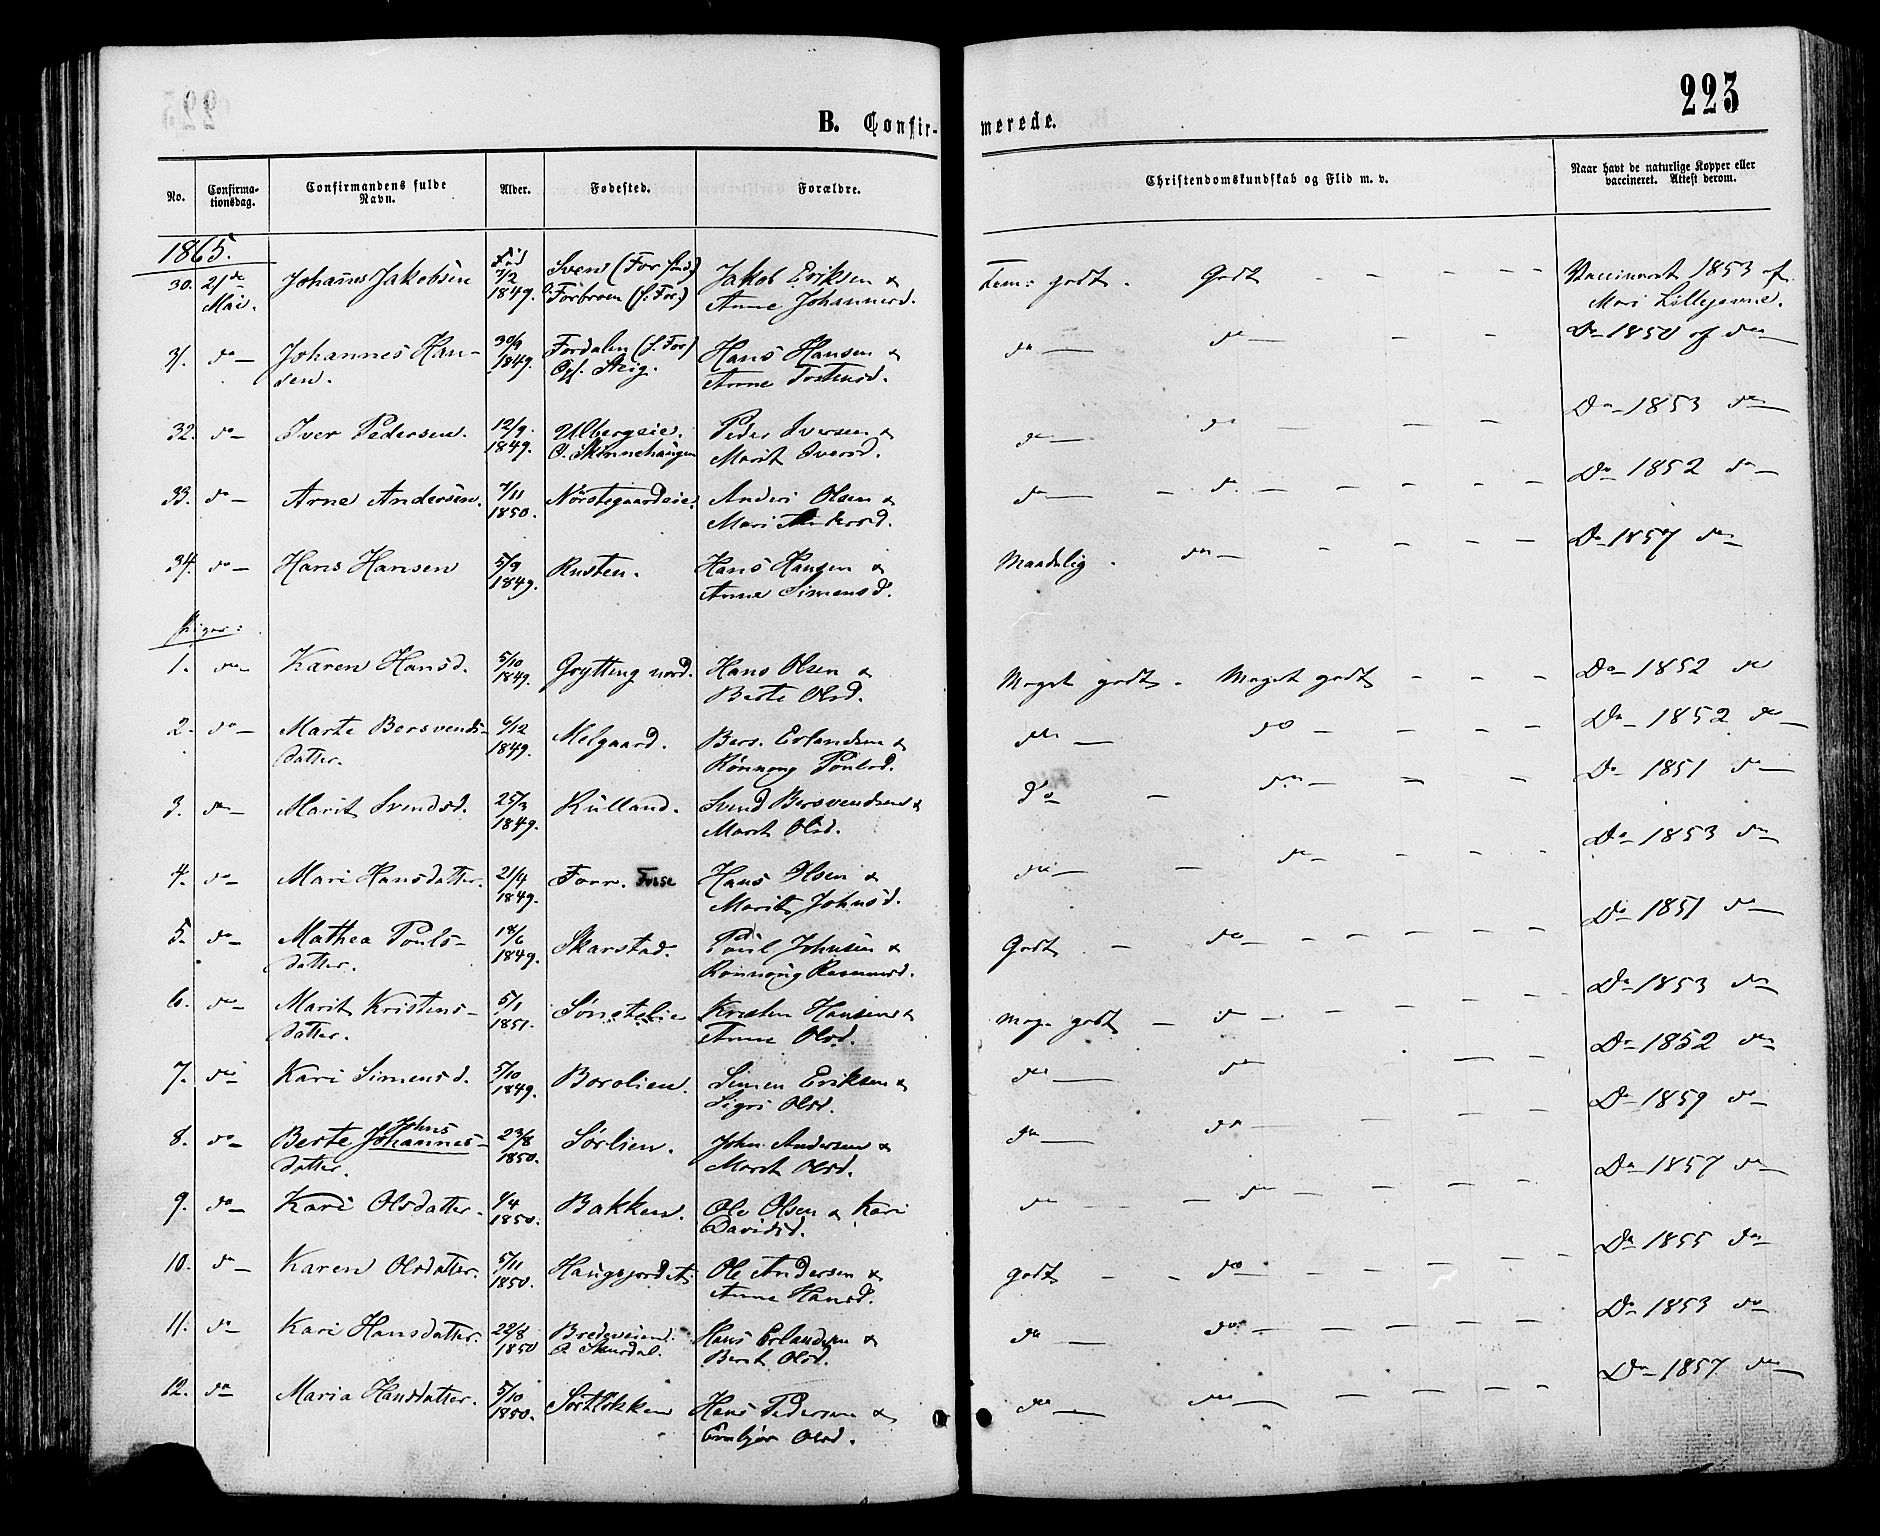 223
B. Confir-
merede.
No.
Confirma-
tionsdag.
Confirmandens fulde
Navn.
Alder.
Fødested.
Forældre.
Christendomskundskab og Flid m. v.
Naar havt de naturlige Kopper eller
vaccineret. Attest derom.
1865.
30. 21de Mai. Johannes Jakobsen Fød 7/2 1849. Jakob Eriksen & Anne Johannesd. Tem: godt. Godt - - - - - Vaccineret 1853 af Mari Lillejevne.
31. do — Johannes Han-
sen. 30/9 1849. Fordalen (S. For) Opf. Steig. Hans Hansen & Anne Tostensd. do — do — — — Do 1850 af do —
32. do — Iver Pedersen. 12/9 1849. Ulbergeie. O. Skinnehaugen Peder Iversen & Marit Iversd. do — do — — — Do — 1853 do —
33. do — Arne Andersen. 7/11 1850. Nørstegaardeie. Anders Olsen & Mari Andersd. do — — do. — — — — — Do 1852 do —
34. do — Hans Hansen 5/9 1849. Rusten. Hans Hansen & Anne Simensd. Maadelig. do — — — — — Do 1857 do
Piger:
1. do — Karen Hansd. 5/10 1849. Grytting nord. Hans Olsen & Berte Olsd. Meget godt. Meget godt - - - Do — 1852 do
2. do — Marte Bersvends-
datter. 6/12 1849. Melgaard. Bers. Erlandsen & Rønnong Poulsd. do — do — — — Do — 1852 do —
3. do — Marit Svendsd. 25/3 1849. Kulland. Svend Bersvendsen & Marit Olsd. do — do — — — Do 1851 do —
4. do — Mari Hansdatter. 21/4 1849. Forr. Fosse Hans Olsen & Marit Johnsd. do — — do — — — — Do 1853 do —
5. do — Mathea Pouls-
datter. 18/6 1849. Skarstad. Poul Johnsen & Rønnong Rasmusd. Godt — do — — — — — — Do 1851 do —
6. do — Marit Kristens-
datter. 5/1 1851. Sønstelie Kristen Hansen & Anne Olsd. Meg. godt — do — — — — Do 1853 do —
7. do Kari Simensd. 5/10 1849. Borolien. Simen Eriksen & Sigri Olsd. do — do — — — Do 1852 do —
8. do — Berte Johannes-
Johns
datter. 23/8 1850. Sørlien. John Andersen & Marit Olsd. do — do — — — Do 1859 do —
9. do — Kari Olsdatter. 1/4 1850. Bakken. Ole Olsen & Kari Davidsd. do — do — — — — — Do 1857 do —
10. do — Karen Olsdatter. 5/11 1850. Haugsjordet. Ole Andersen & Anne Hansd. godt — — do — — — — — Do 1855 do —
11. do — Kari Hansdatter. 22/8 1850 Bredeveiend. O. Skurdal. Hans Erlandsen & Berit Olsd. do — do — — — — — — Do 1853 do —
12. do Maria Hansdatter. 5/10 1850. Sørtløkken Hans Pedersen & Embjør Olsd. do — do — — — — — Do — 1857 do —